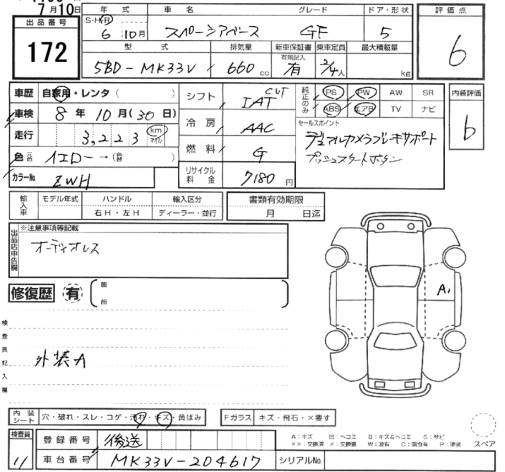 7月10日
出品番号
172
年式
S・H・R
6年10月
車名
スペーシアベース
グレード
GF
ドア・形状
5
評価点
6
型式
5BD-MK33V
排気量
660cc
新車保証書
有
乗車定員
2/4人
最大積載量
kg
車歴 自家用・レンタ( )
車検 8年10月(30日)
走行 3,223 km マイル
色 イエロー→
カラーNo. ZWH
シフト CVT IAT
冷房 AAC
燃料 G
リサイクル料金 7180円
純正のみ
PS PW AW SR
ABS エアB TV ナビ
セールスポイント
デュアルカメラブレーキサポート
プッシュスタートボタン
内装評価
b
輸入車
モデル年式 ハンドル 輸入区分
右H・左H ディーラー・並行
書類有効期限
月 日迄
出品店申告欄
※注意事項等記載
オーディオレス
修復歴 有
箇所
A1
検査員記入欄
外装A
内装シート 穴・破れ・スレ・コゲ・汚れ・キズ・黄ばみ
Fガラス キズ・飛石・×要す
検査員
11
登録番号 後送
車台番号 MK33V-204617
シリアルNo
A:キズ U:ヘコミ B:キズ&ヘコミ S:サビ
スペア